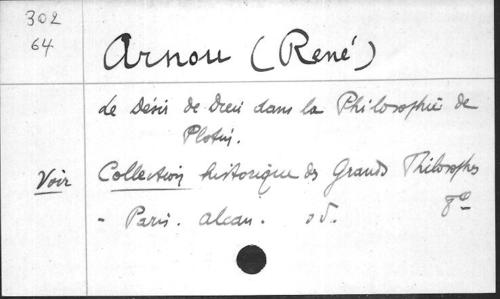 302
64
Arnou (René)
Le Désir de Dieu dans la Philosophie de
Plotin.
Voir Collection historique des Grands Philosophes
- Paris. Alcan. sd. 8º